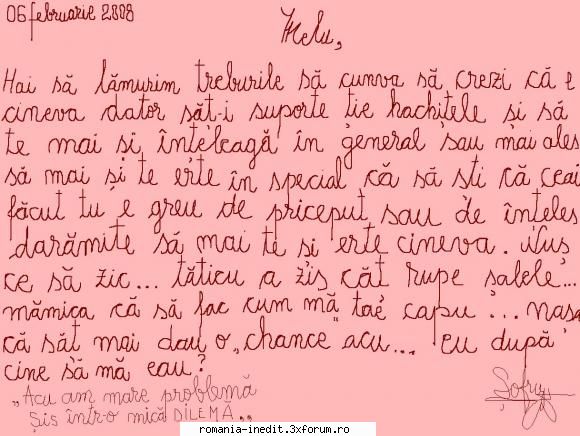 06 februarie 2008
Melu,
Hai să lămurim treburile să cumva să crezi că e
cineva dator săt-i suporte tie hachitele si să
te mai și înțeleagă în general sau mai ales
să mai și te erte în special că să sti că ceai
făcut tu e greu de priceput sau de înțeles
darămite să mai te si erte cineva. Nuș
ce să zic... tăticu a zis căt rupe șalele...
mămica că să fac cum mă tae capu ... nasa
că săt mai dau o „chance" acu... eu după
cine să mă eau?
„Acu am mare problemă
Șis într-o mică DILEMĂ„
Sofy
romania-inedit.3xforum.ro